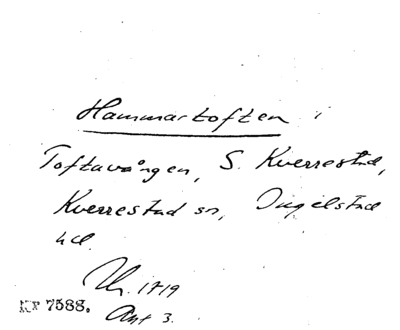 Hammartoften i
Toftavången, S. Kverrestad,
Kverrestad sn, Ingelstad
hd.
1719
Akt 3.
7588.